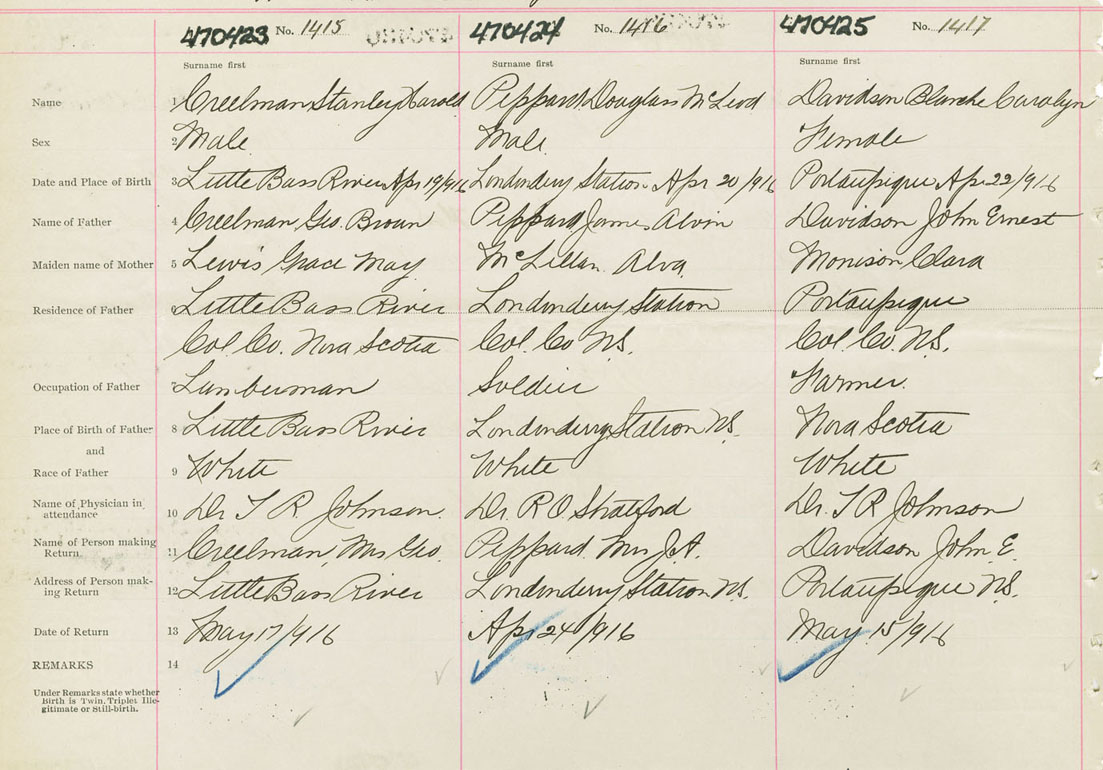 470423 No. 1415 470424 No. 1416 470425 No. 1417
Surname first Surname first Surname first
Name 1 Creelman Stanley Harold Peppard Douglass McLeod Davidson Blanche Carolyn
Sex 2 Male Male Female
Date and Place of Birth 3 Little Bass River Apr 19/916 Londonderry Station Apr 20/916 Portaupique Apr 22/916
Name of Father 4 Creelman Geo. Brown Peppard James Alvin Davidson John Ernest
Maiden name of Mother 5 Lewis Grace May McLellan Alva Morrison Clara
Residence of Father 6 Little Bass River Londonderry Station Portaupique
Col. Co. Nova Scotia Col. Co N.S. Col. Co. N.S.
Occupation of Father 7 Lumberman Soldier Farmer
Place of Birth of Father 8 Little Bass River Londonderry Station N.S. Nova Scotia
and
Race of Father 9 White White White
Name of Physician in
attendance 10 Dr T R Johnson Dr. R O Shatford Dr. T R Johnson
Name of Person making
Return 11 Creelman, Mrs Geo Peppard Mrs J.A. Davidson John E.
Address of Person mak-
ing Return 12 Little Bass River Londonderry Station N.S. Portaupique N.S.
Date of Return 13 May 17/916 Apr 24/916 May 15/916
REMARKS 14
Under Remarks state whether
Birth is Twin, Triplet Ille-
gitimate or Still-birth.